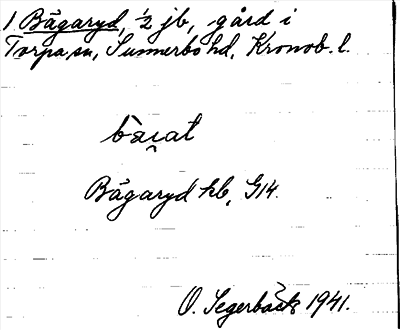 1 Bägaryd, ½ jb, gård i
Torpa sn, Sunnerbo hd, Kronob. l.
Bägaryd hb, G14.
O. Segerbäck 1941.